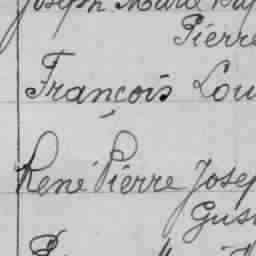 Joseph Marie
Pierre
François Lou
René Pierre Josep
Gus